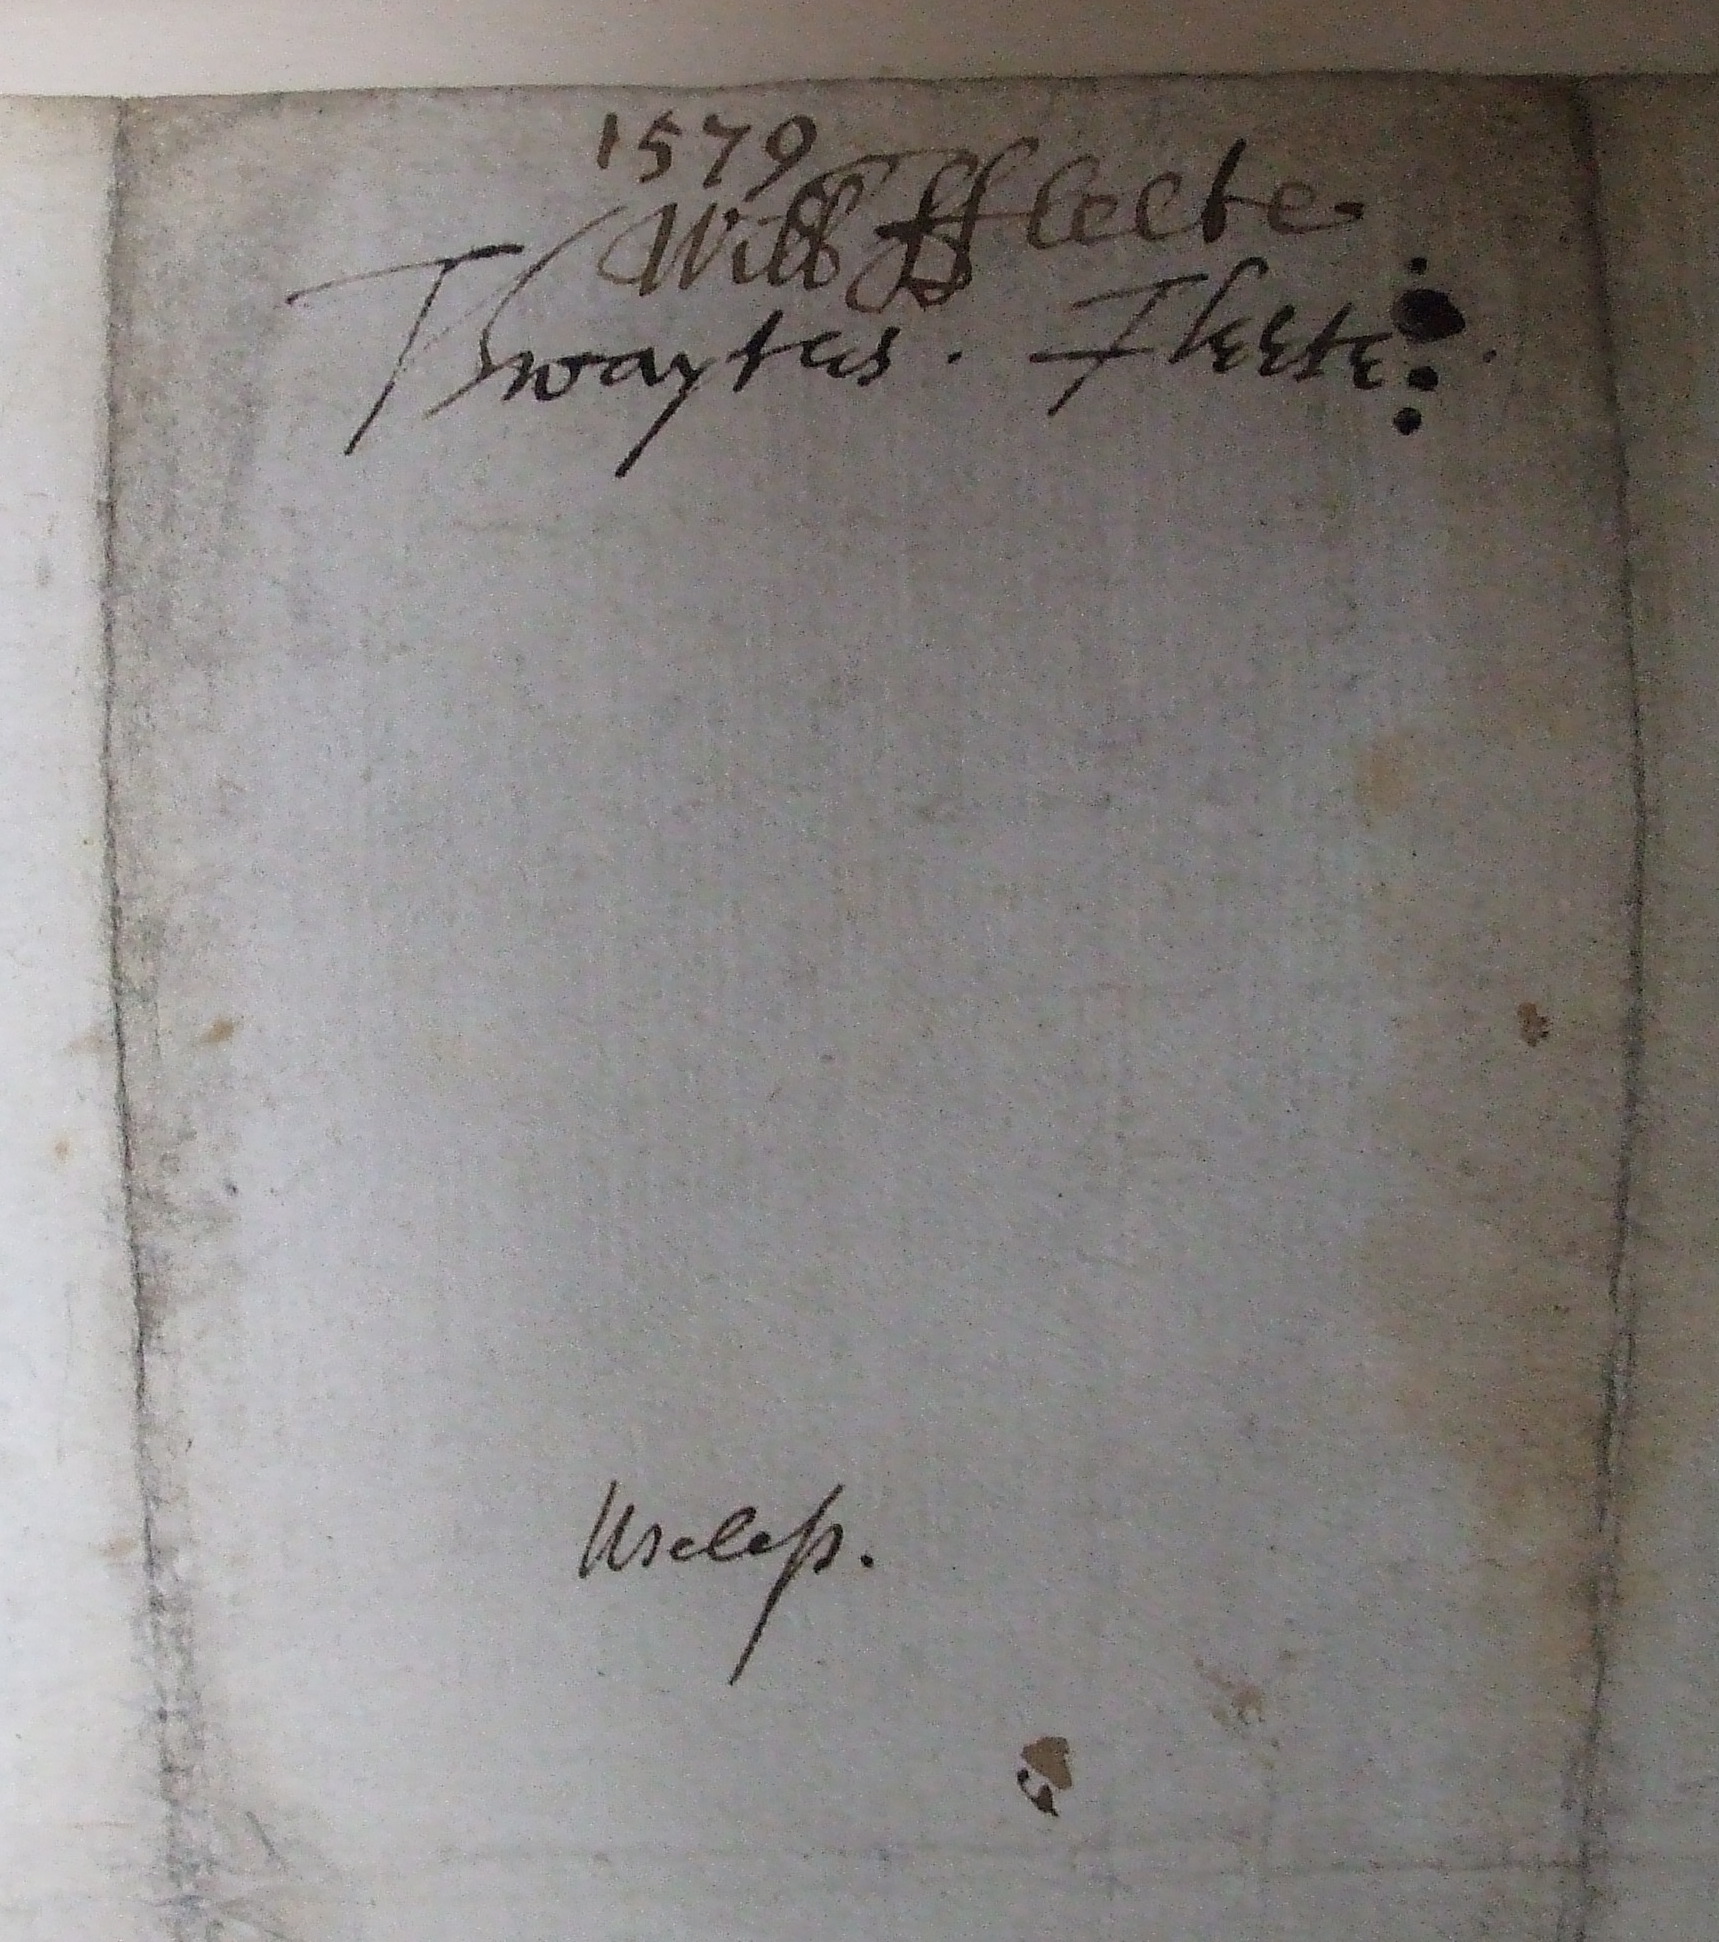 1579
Will ffleete
Thwaytes. Fleete.
Useless.